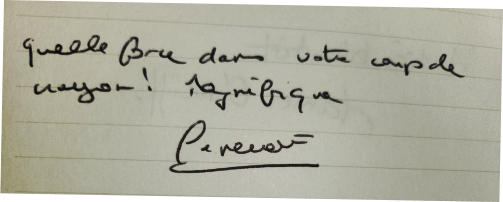 quelle force dans votre coup de
crayon ! Magnifique